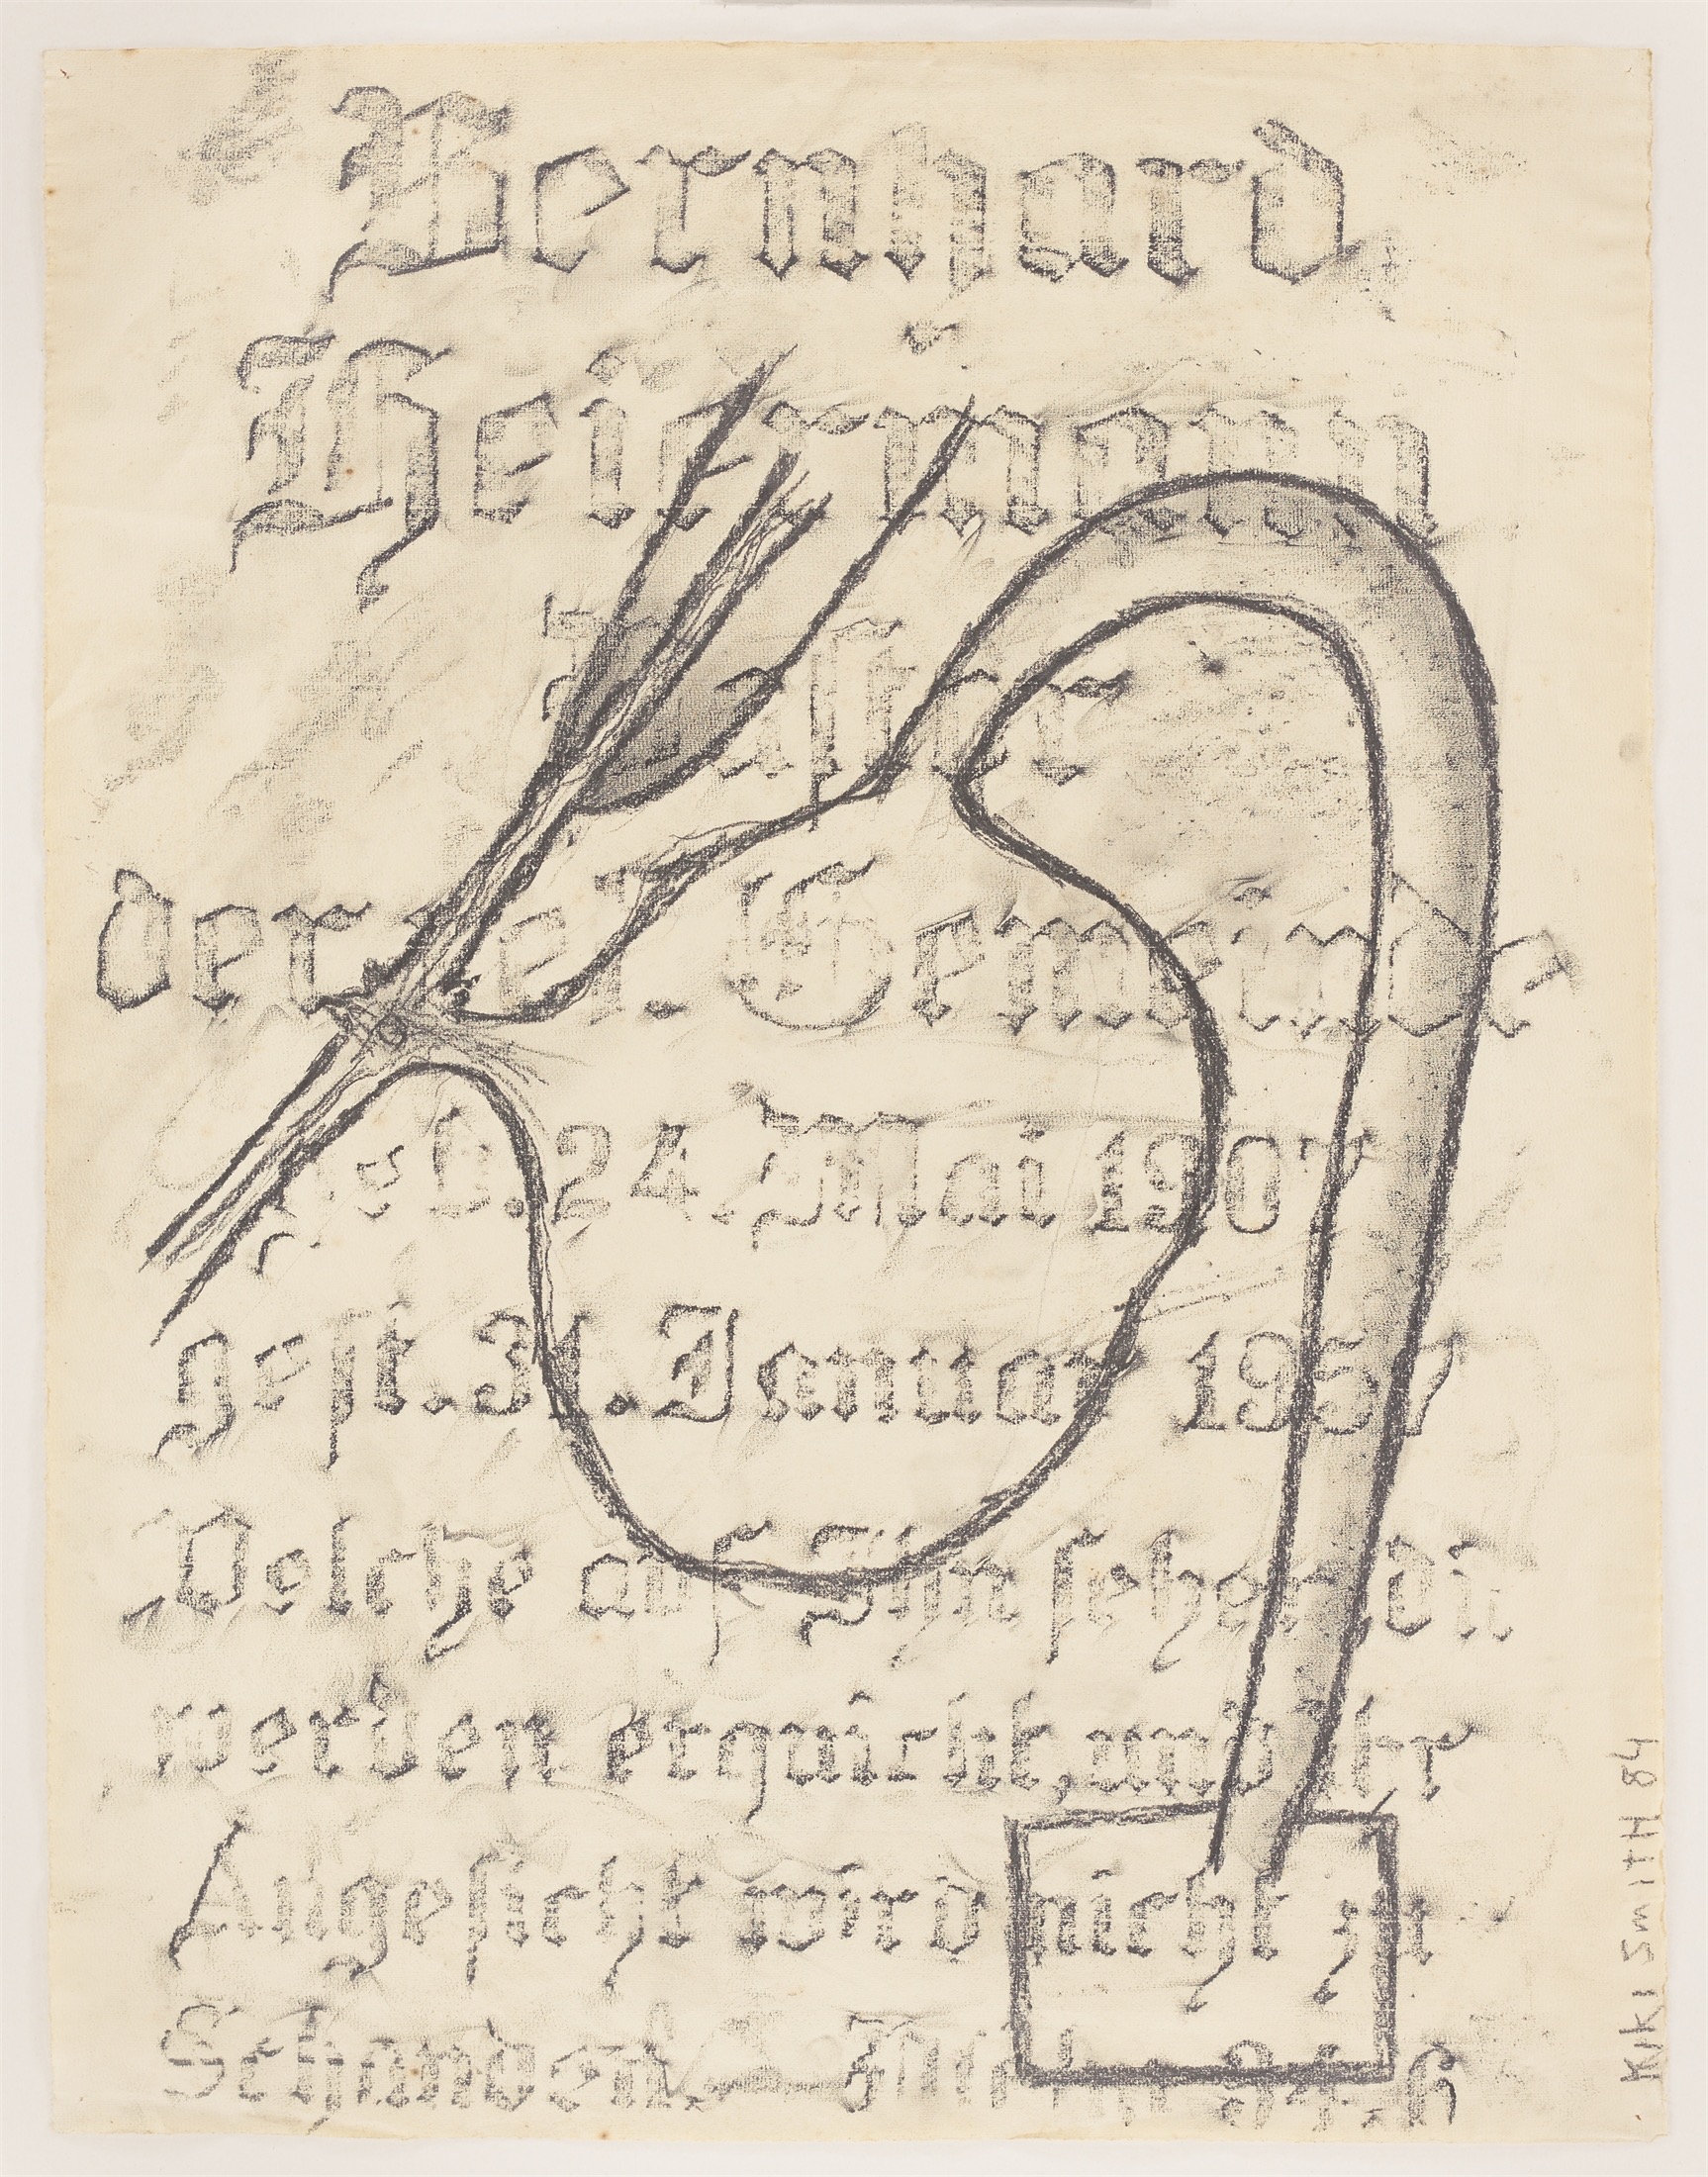 Bernhard
Heiermann
Pastor
der ref. Gemeinde
geb. 24. Mai 1907
gest. 31. Januar 1957
Welche auf Ihn sehen, die
werden erquickt, und ihr
Angesicht wird nicht zu
Schanden. 34.6
KIKI SMITH 84